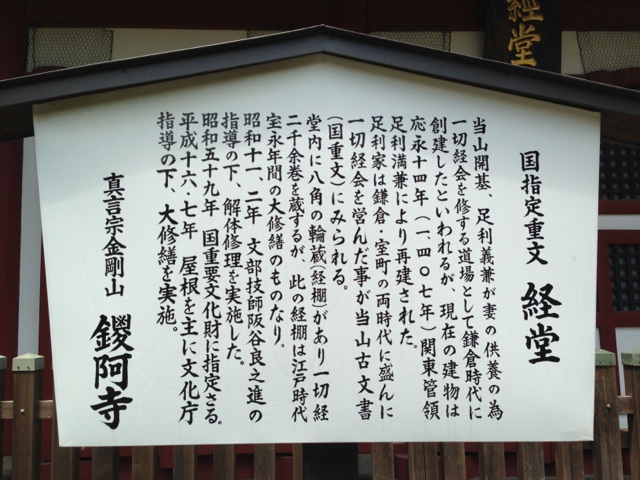 経堂
国指定重文 経堂
当山開基、足利義兼が妻の供養の為
一切経会を修する道場として鎌倉時代に
創建したといわれるが、現在の建物は
応永十四年(一、四〇七年)関東管領
足利満兼により再建された。
足利家は鎌倉・室町の両時代に盛んに
一切経会を営んだ事が当山古文書
(国重文)にみられる。
堂内に八角の輪蔵(経棚)があり一切経
二千余巻を蔵するが、此の経棚は江戸時代
宝永年間の大修繕のものなり。
昭和十一、二年 文部技師阪谷良之進の
指導の下、解体修理を実施した。
昭和五十九年 国重要文化財に指定さる。
平成十六、七年 屋根を主に文化庁
指導の下、大修繕を実施。
真言宗金剛山 鑁阿寺